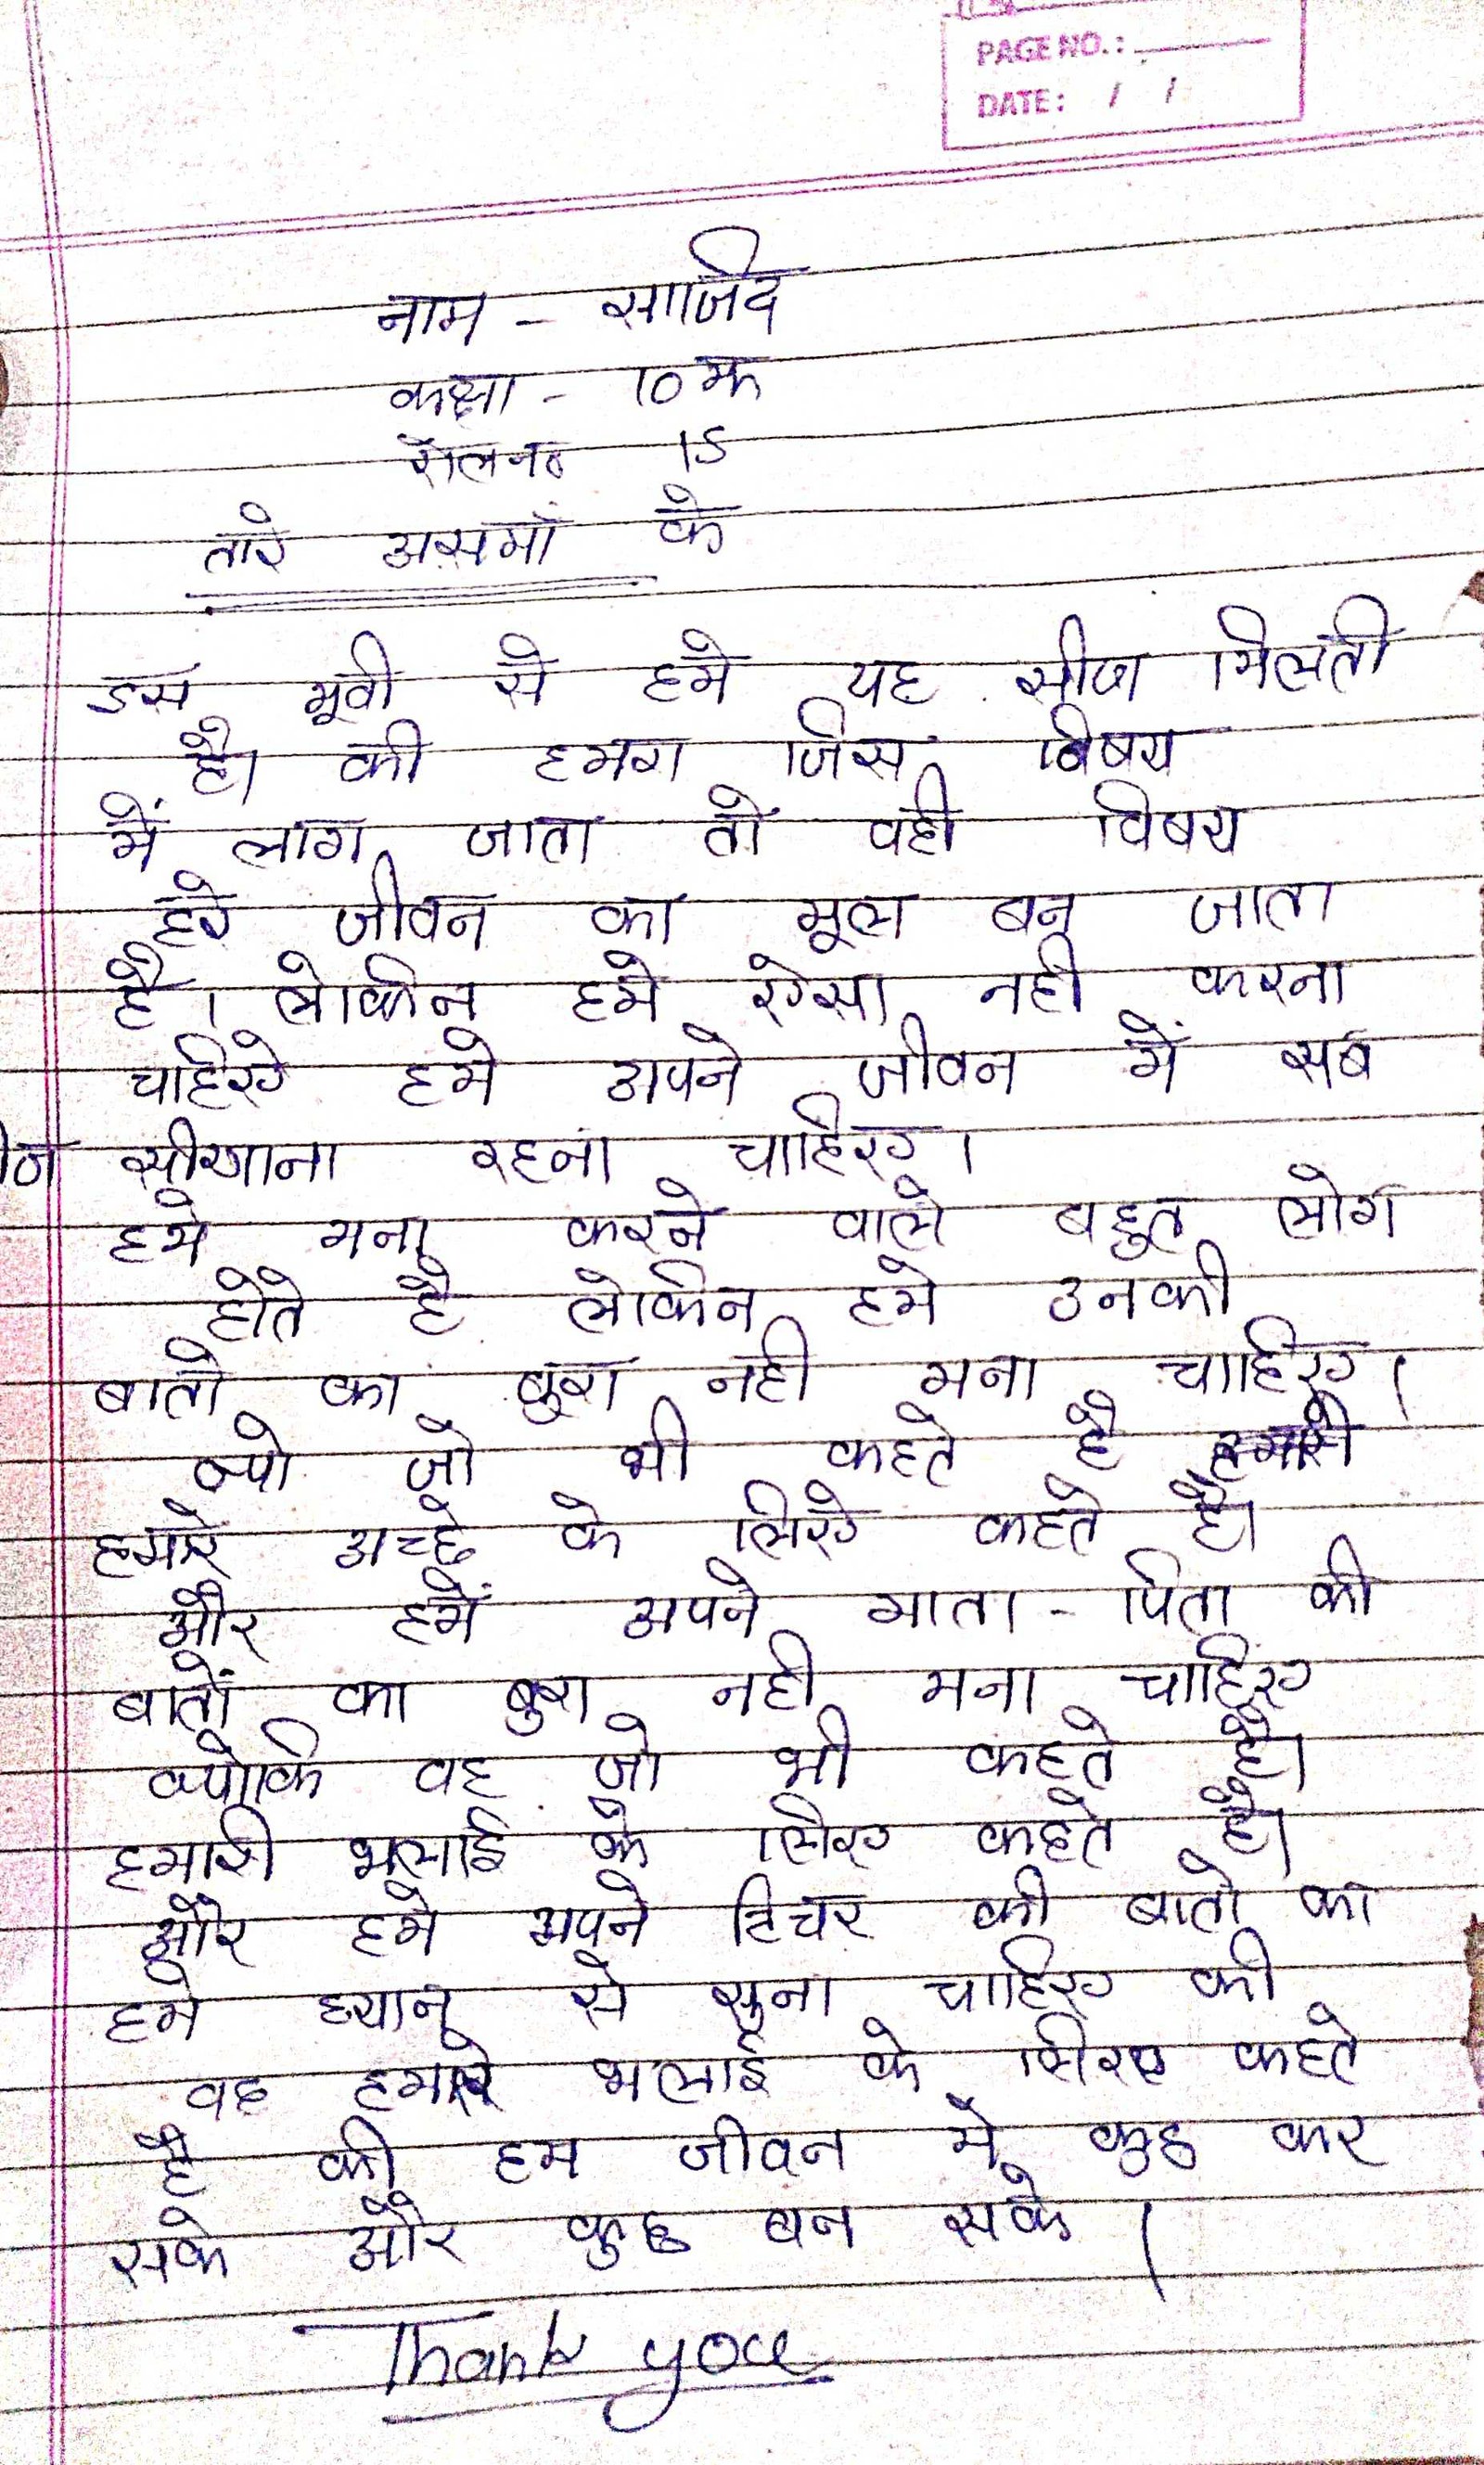 PAGE NO.:
DATE: / /
नाम - साजिद
कक्षा - 10 क
रोल न० 15
तारे असमाँ के
इस मूवी से हमे यह सीख मिलती
है। की हमरा जिस विषय
में लाग जाता तो वही विषय
हरे जीवन का मूल बन जाता
है। लेकिन हमे ऐसा नही करना
चाहिऐ हमे अपने जीवन में सब
सीखाना रहना चाहिए।
हमे मना करने वाले बहुत लोग
होते है लेकिन हमे उनकी
बातो का बुरा नही मना चाहिए।
क्यो जो भी कहते है
हमारे अच्छे के लिऐ कहते है।
और हमें अपने माता - पिता की
बातों का बुरा नही मना चाहिए
क्योकि वह जो भी कहते है।
हमारी भलाई के लिए कहते है।
और हमे अपने टिचर की बातो का
हमे ध्यान से सुना चाहिए की
वह हमारे भलाई के लिए कहते
है की हम जीवन मे कुछ कर
सके और कुछ बन सके।
Thank you